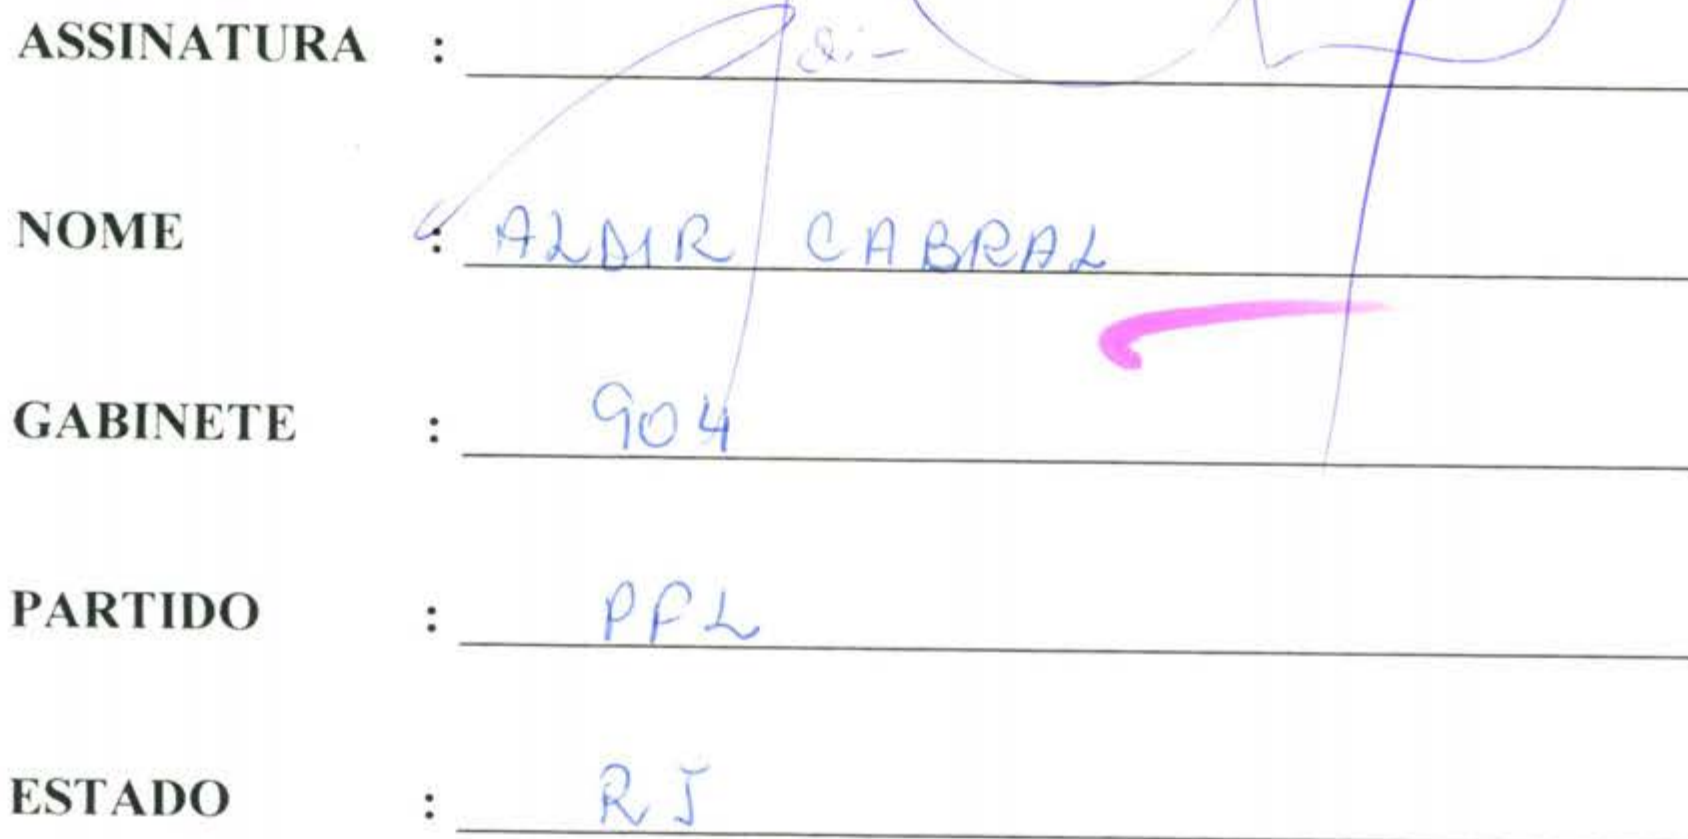 ASSINATURA :
NOME : ALDIR CABRAL
GABINETE : 904
PARTIDO : PFL
ESTADO : RJ